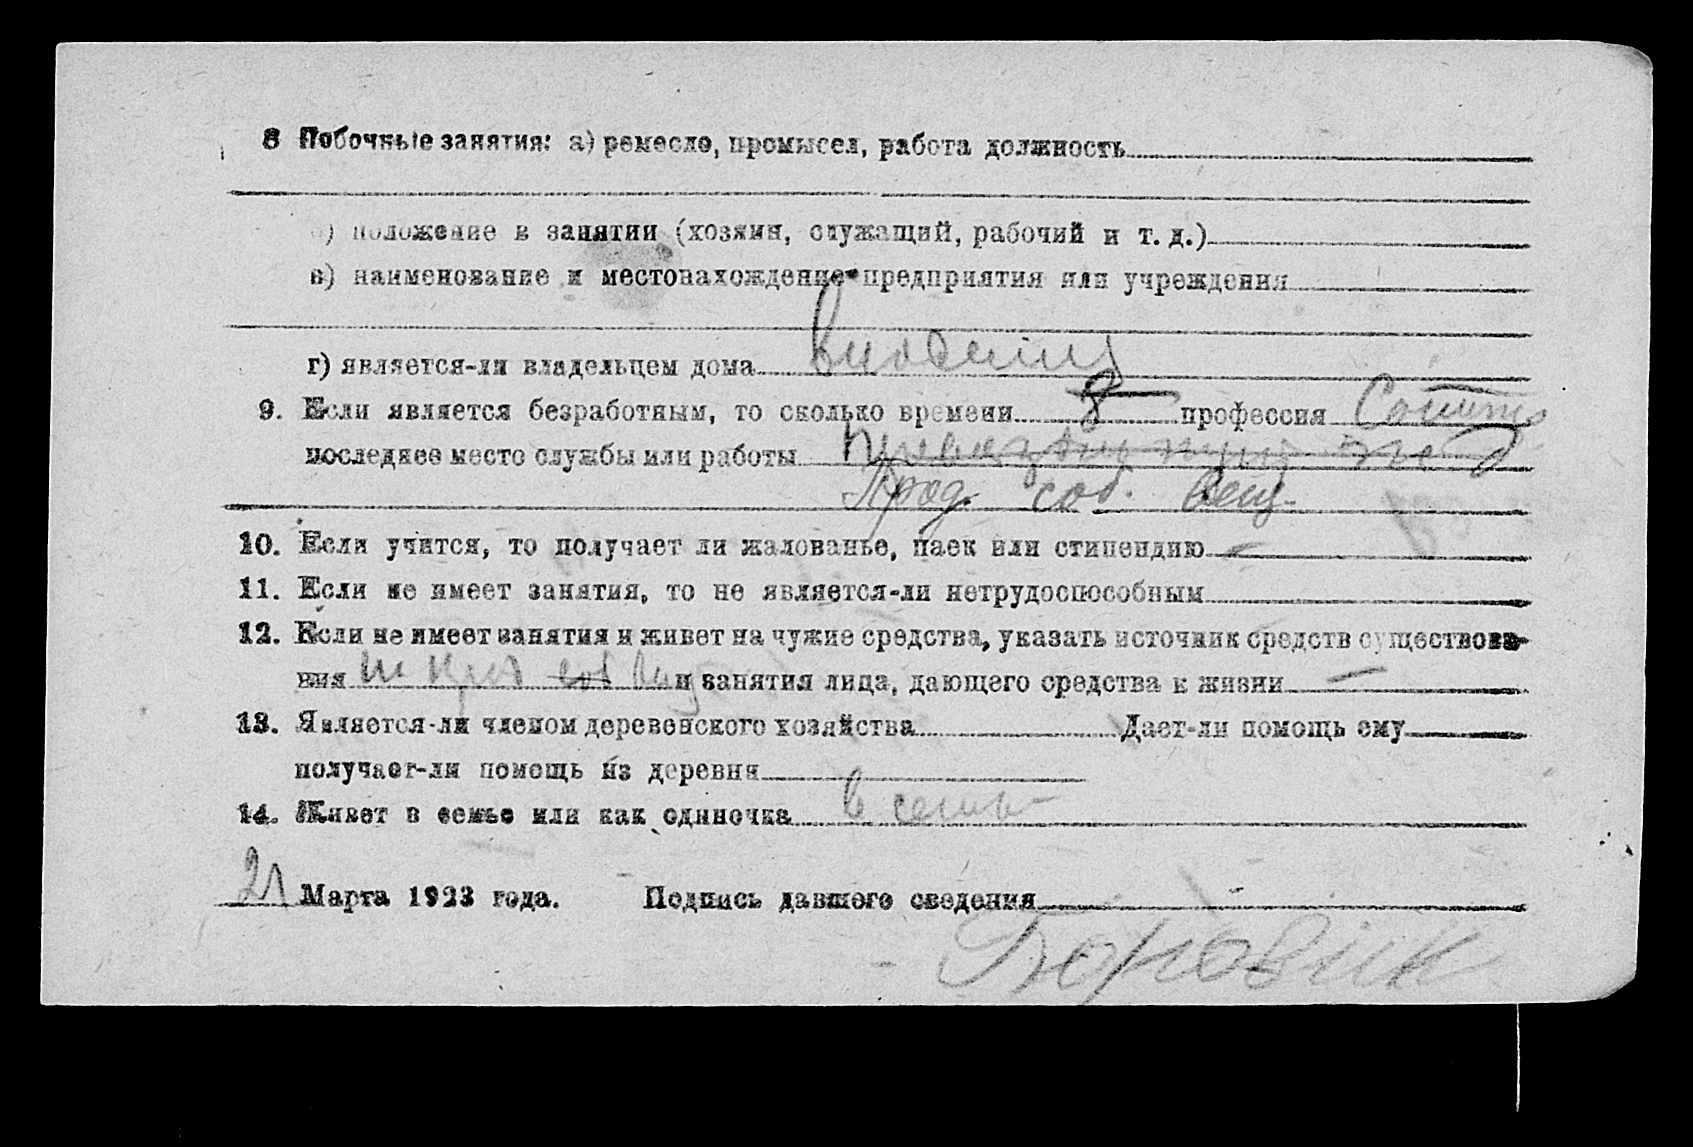 8 Побочные занятия: а) ремесло, промысел, работа должность
б) положение в занятии (хозяин, служащий, рабочий и т. д.)
в) наименование и местонахождение предприятия или учреждения
г) является-ли владельцем дома
9. Если является безработным, то сколько времени 8 профессия
последнее место службы или работы
Прод. соб. вещ.
10. Если учится, то получает ли жалованье, паек или стипендию —
11. Если не имеет занятия, то не является-ли нетрудоспособным
12. Если не имеет занятия и живет на чужие средства, указать источник средств существова-
ния прод соб и занятия лица, дающего средства к жизни —
13. Является-ли членом деревенского хозяйства Дает-ли помощь ему
получает-ли помощь из деревня
14. Живет в семье или как одиночка в семье
21 Марта 1923 года. Подпись давшего сведения
Боровик